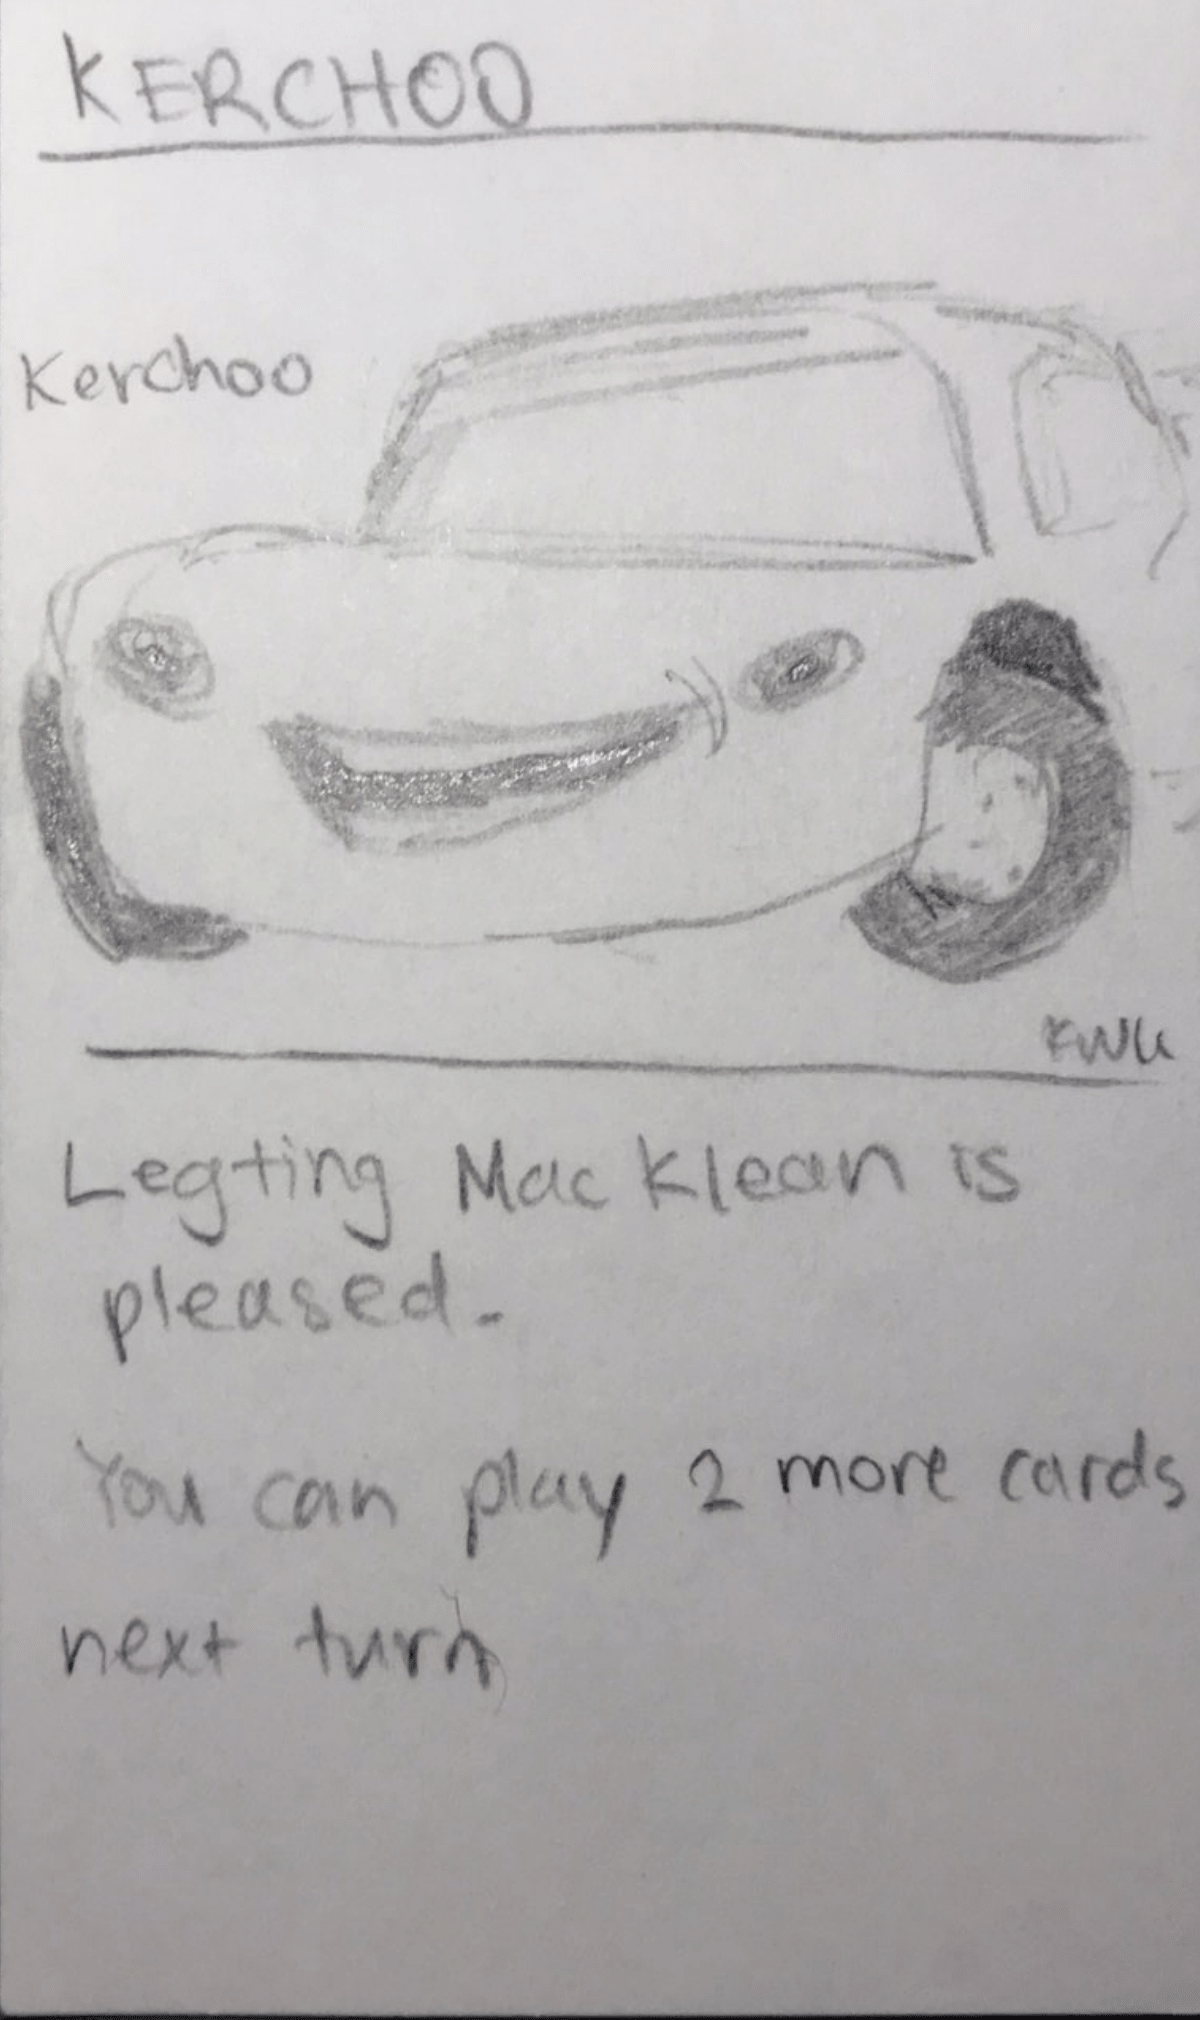 KERCHOO
Kerchoo
Legting Mac Klean is
pleased.
You can play 2 more cards
next turn